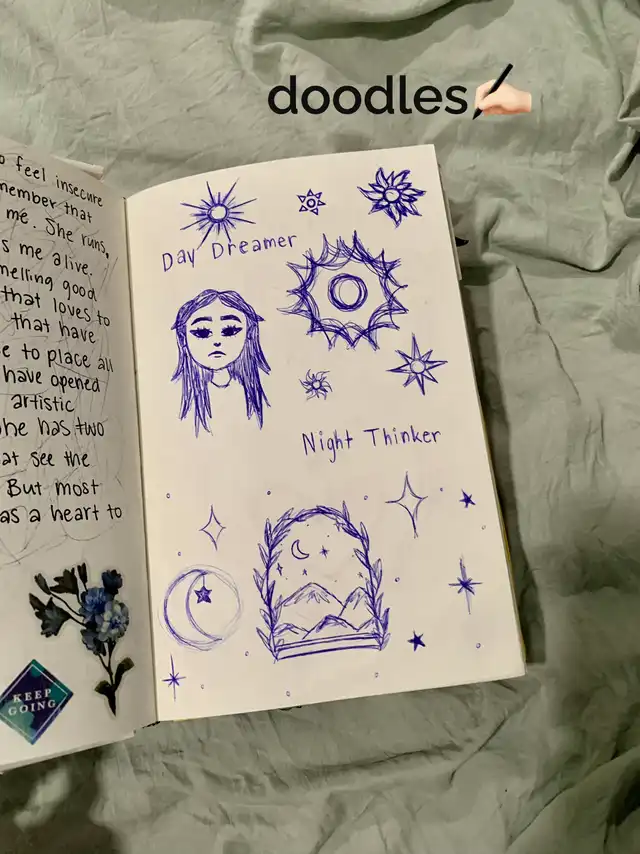 doodles✍🏻
o feel insecure
member that
me. She runs,
s me alive.
melling good
that loves to
that have
e to place all
have opened
artistic
he has two
at see the
But most
as a heart to
KEEP
GOING
Day Dreamer
Night Thinker